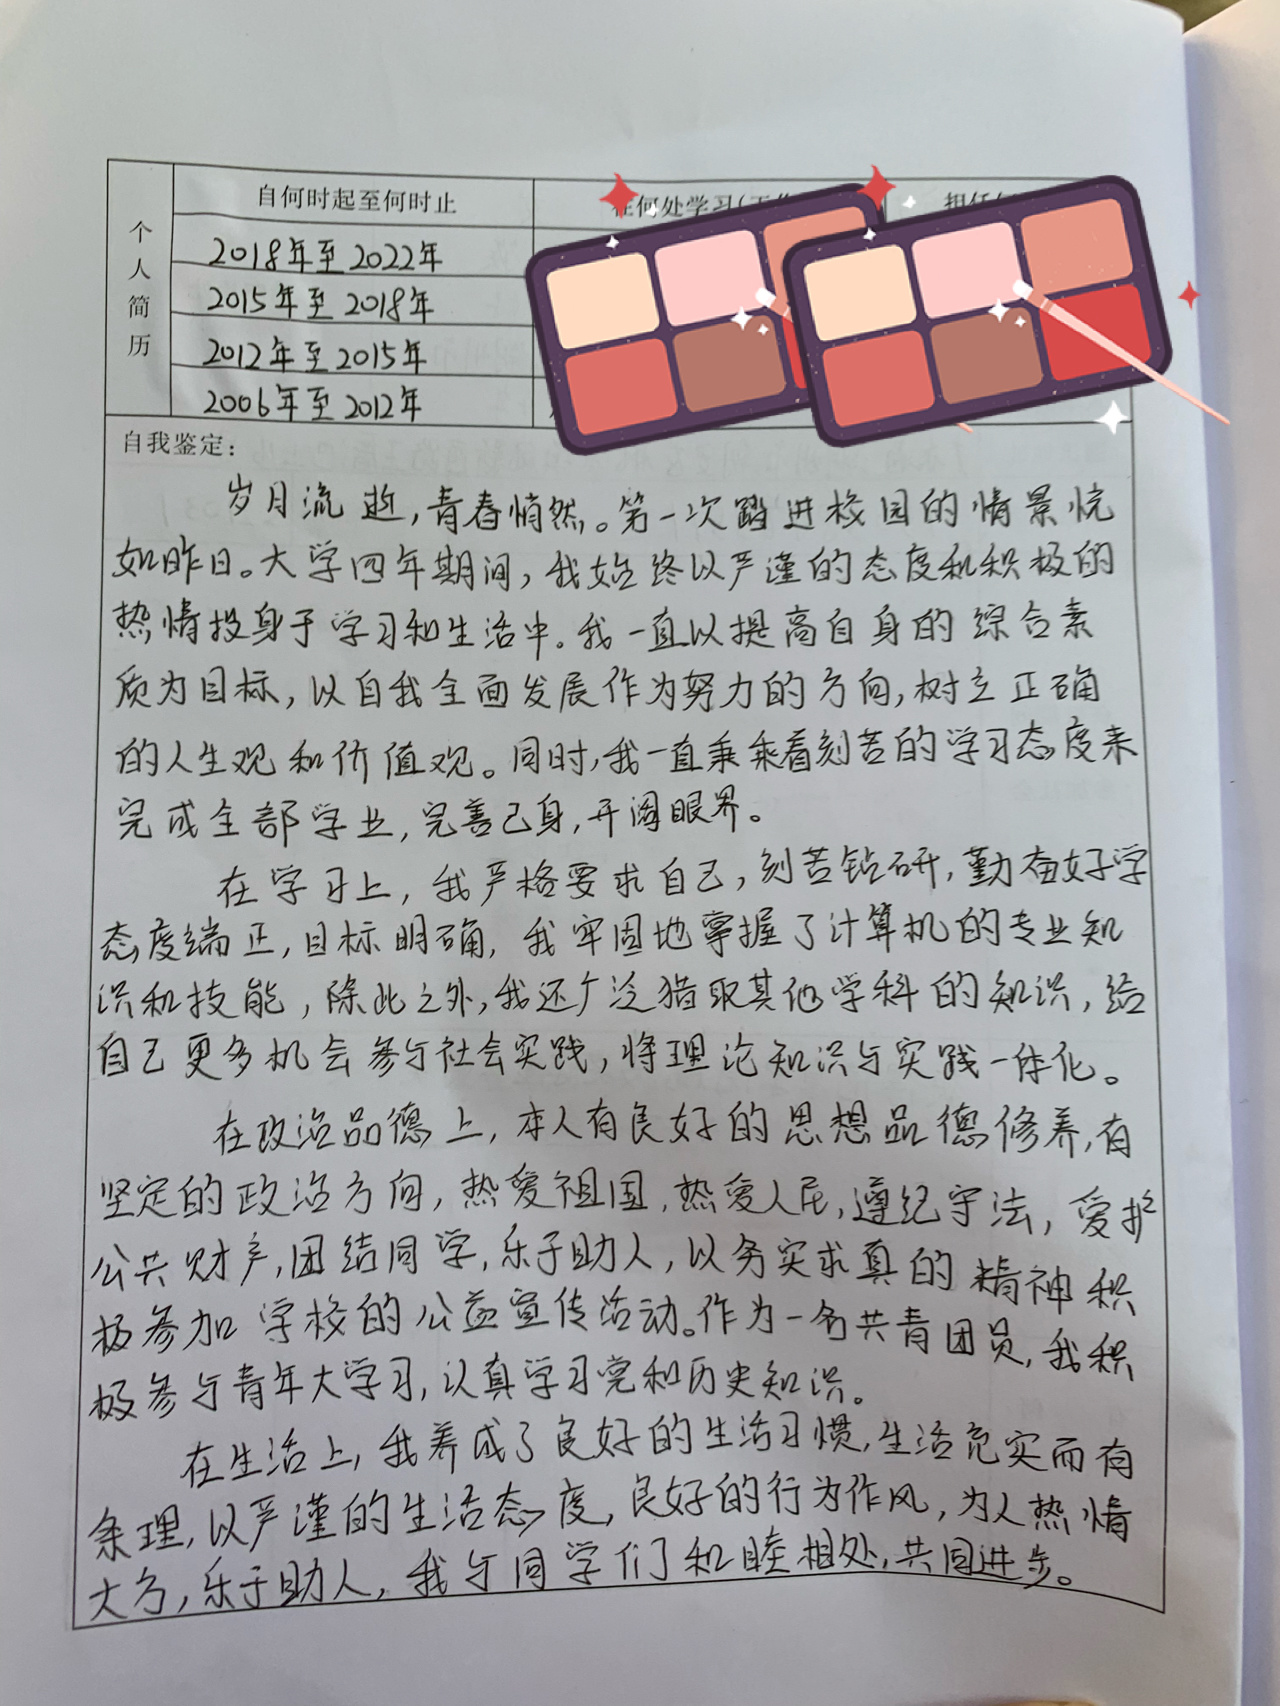 个人简历
自何时起至何时止
在何处学习(工作
担任
2018年至2022年
2015年至2018年
2012年至2015年
2006年至2012年
自我鉴定:
岁月流逝,青春悄然。第一次踏进校园的情景恍
如昨日。大学四年期间,我始终以严谨的态度和积极的
热情投身于学习和生活中。我一直以提高自身的综合素
质为目标,以自我全面发展作为努力的方向,树立正确
的人生观和价值观。同时,我一直秉乘着刻苦的学习态度来
完成全部学业,完善己身,开阔眼界。
在学习上,我严格要求自己,刻苦钻研,勤奋好学
态度端正,目标明确,我牢固地掌握了计算机的专业知
识和技能,除此之外,我还广泛猎取其他学科的知识,给
自己更多机会参与社会实践,将理论知识与实践一体化。
在政治品德上,本人有良好的思想品德修养,有
坚定的政治方向,热爱祖国,热爱人民,遵纪守法,爱护
公共财产,团结同学,乐于助人,以务实求真的精神积
极参加学校的公益宣传活动。作为一名共青团员,我积
极参与青年大学习,认真学习党和历史知识。
在生活上,我养成了良好的生活习惯,生活充实而有
条理,以严谨的生活态度,良好的行为作风,为人热情
大方,乐于助人,我与同学们和睦相处,共同进步。